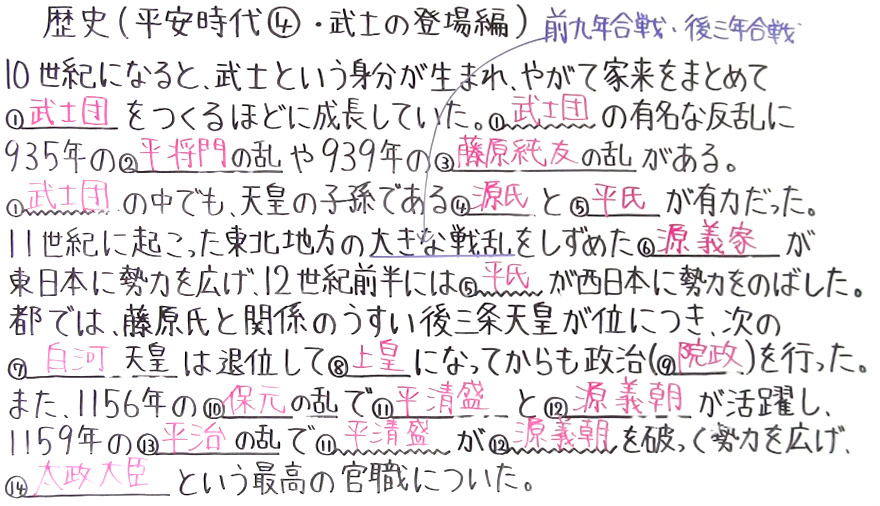 歴史(平安時代④・武士の登場編) 前九年合戦・後三年合戦
10世紀になると、武士という身分が生まれ、やがて家来をまとめて
①武士団をつくるほどに成長していた。①武士団の有名な反乱に
935年の②平将門の乱や939年の③藤原純友の乱がある。
①武士団の中でも、天皇の子孫である④源氏と⑤平氏が有力だった。
11世紀に起こった東北地方の大きな戦乱をしずめた⑥源義家が
東日本に勢力を広げ、12世紀前半には⑤平氏が西日本に勢力をのばした。
都では、藤原氏と関係のうすい後三条天皇が位につき、次の
⑦白河天皇は退位して⑧上皇になってからも政治(⑨院政)を行った。
また、1156年の⑩保元の乱で⑪平清盛と⑫源義朝が活躍し、
1159年の⑬平治の乱で⑪平清盛が⑫源義朝を破って勢力を広げ、
⑭太政大臣という最高の官職についた。